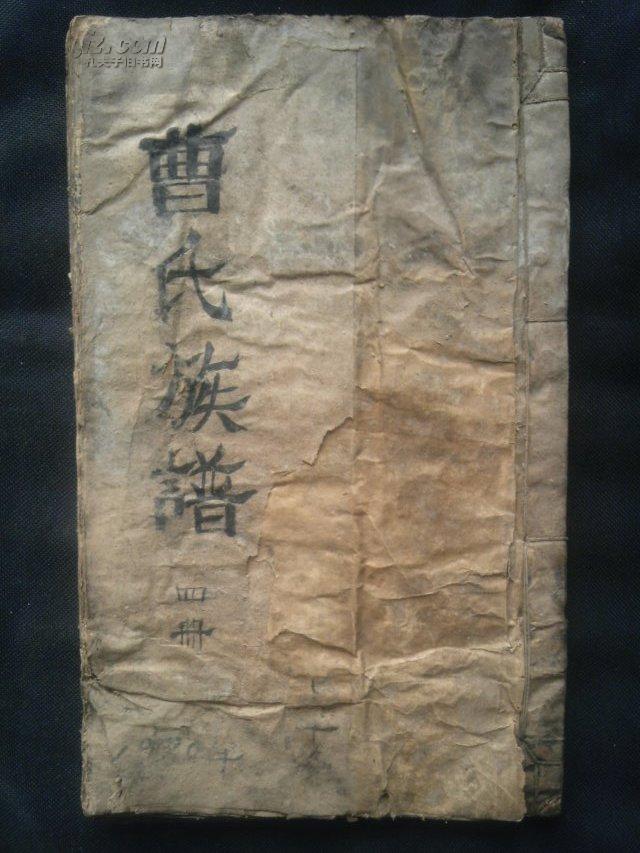 曹氏族譜
四冊
孔夫子旧书网